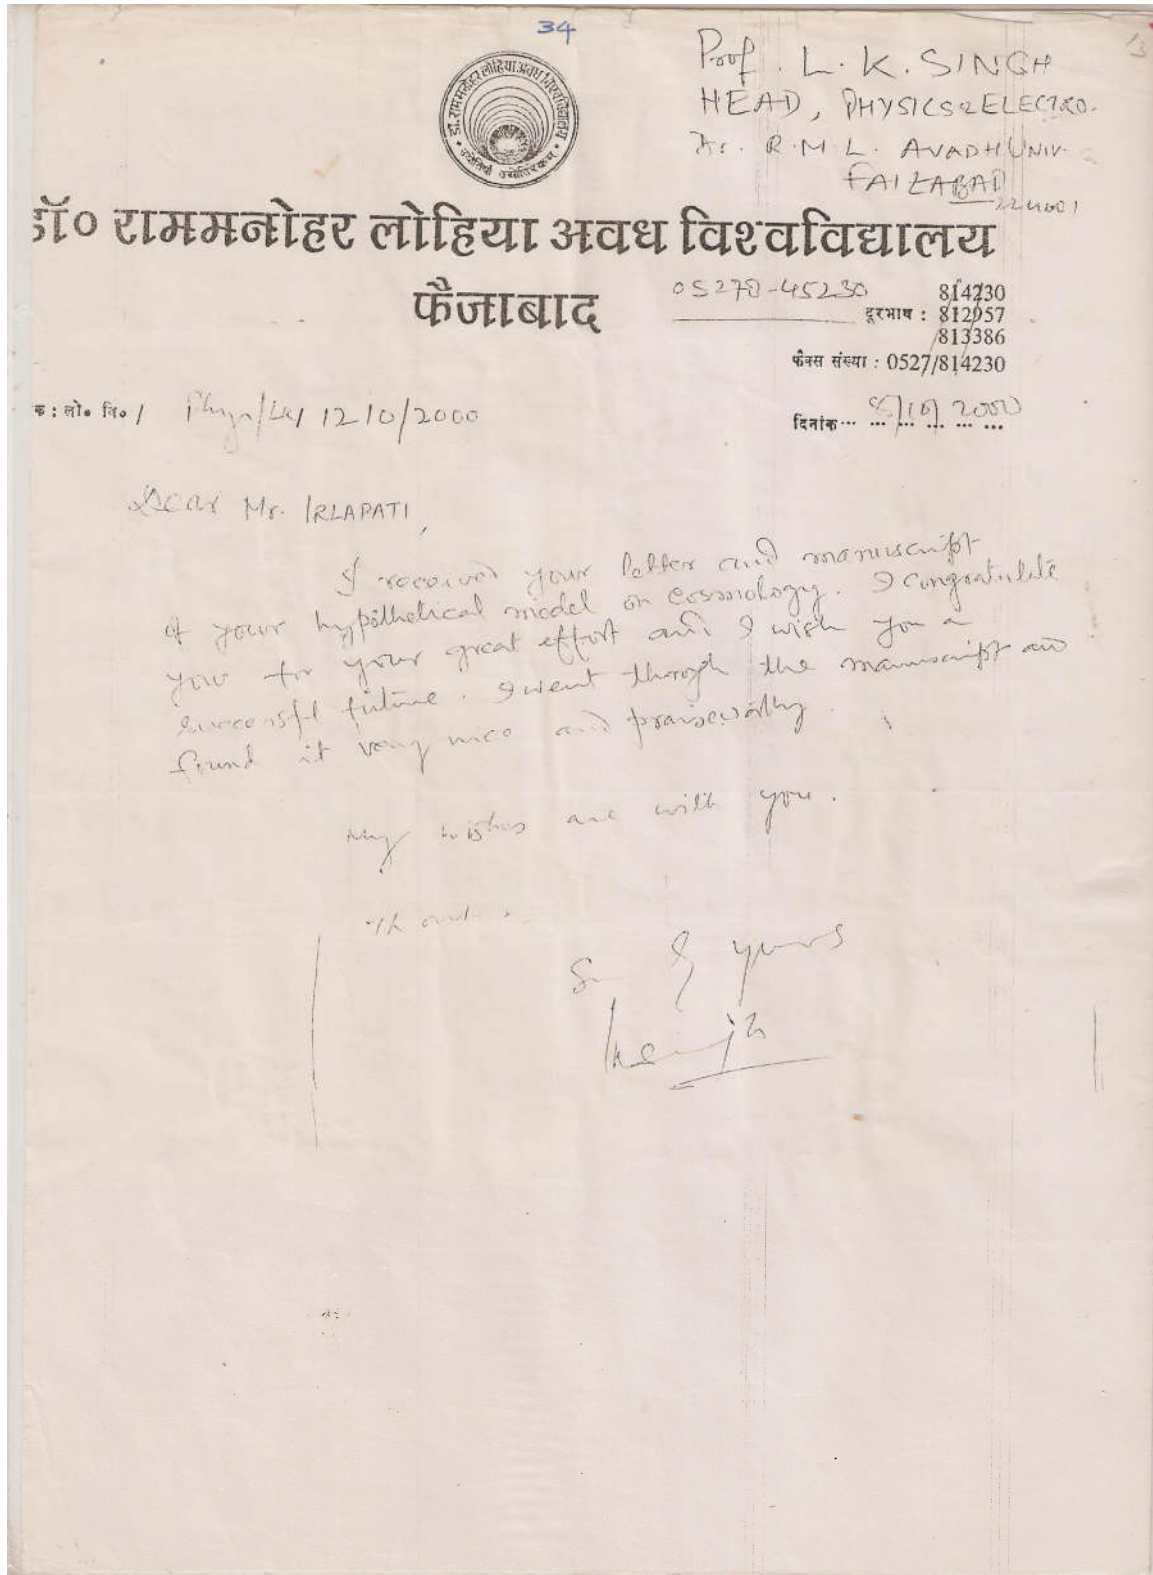 34
Prof. L. K. SINGH
HEAD, PHYSICS & ELECTRO.
Dr. R. M. L. AVADH UNIV.
FAIZABAD
224001
डा. राममनोहर लोहिया अवध विश्वविद्यालय
डॉ० राममनोहर लोहिया अवध विश्वविद्यालय
फैजाबाद
05278-45230
814230
दूरभाष : 812957
813386
फैक्स संख्या : 0527/814230
क : लो० वि० / 1210/2000
दिनांक 2000
Dear Mr. IRLAPATI,
I received your letter and manuscript
of your hypothetical model on cosmology. I congratulate
you for your great effort and I wish you a
successful future. I went through the manuscript and
found it very nice and praiseworthy.
My wishes are with you.
yours